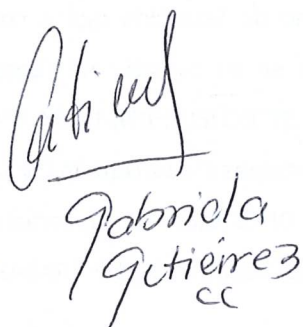 Gabriela
Gutiérrez
cc